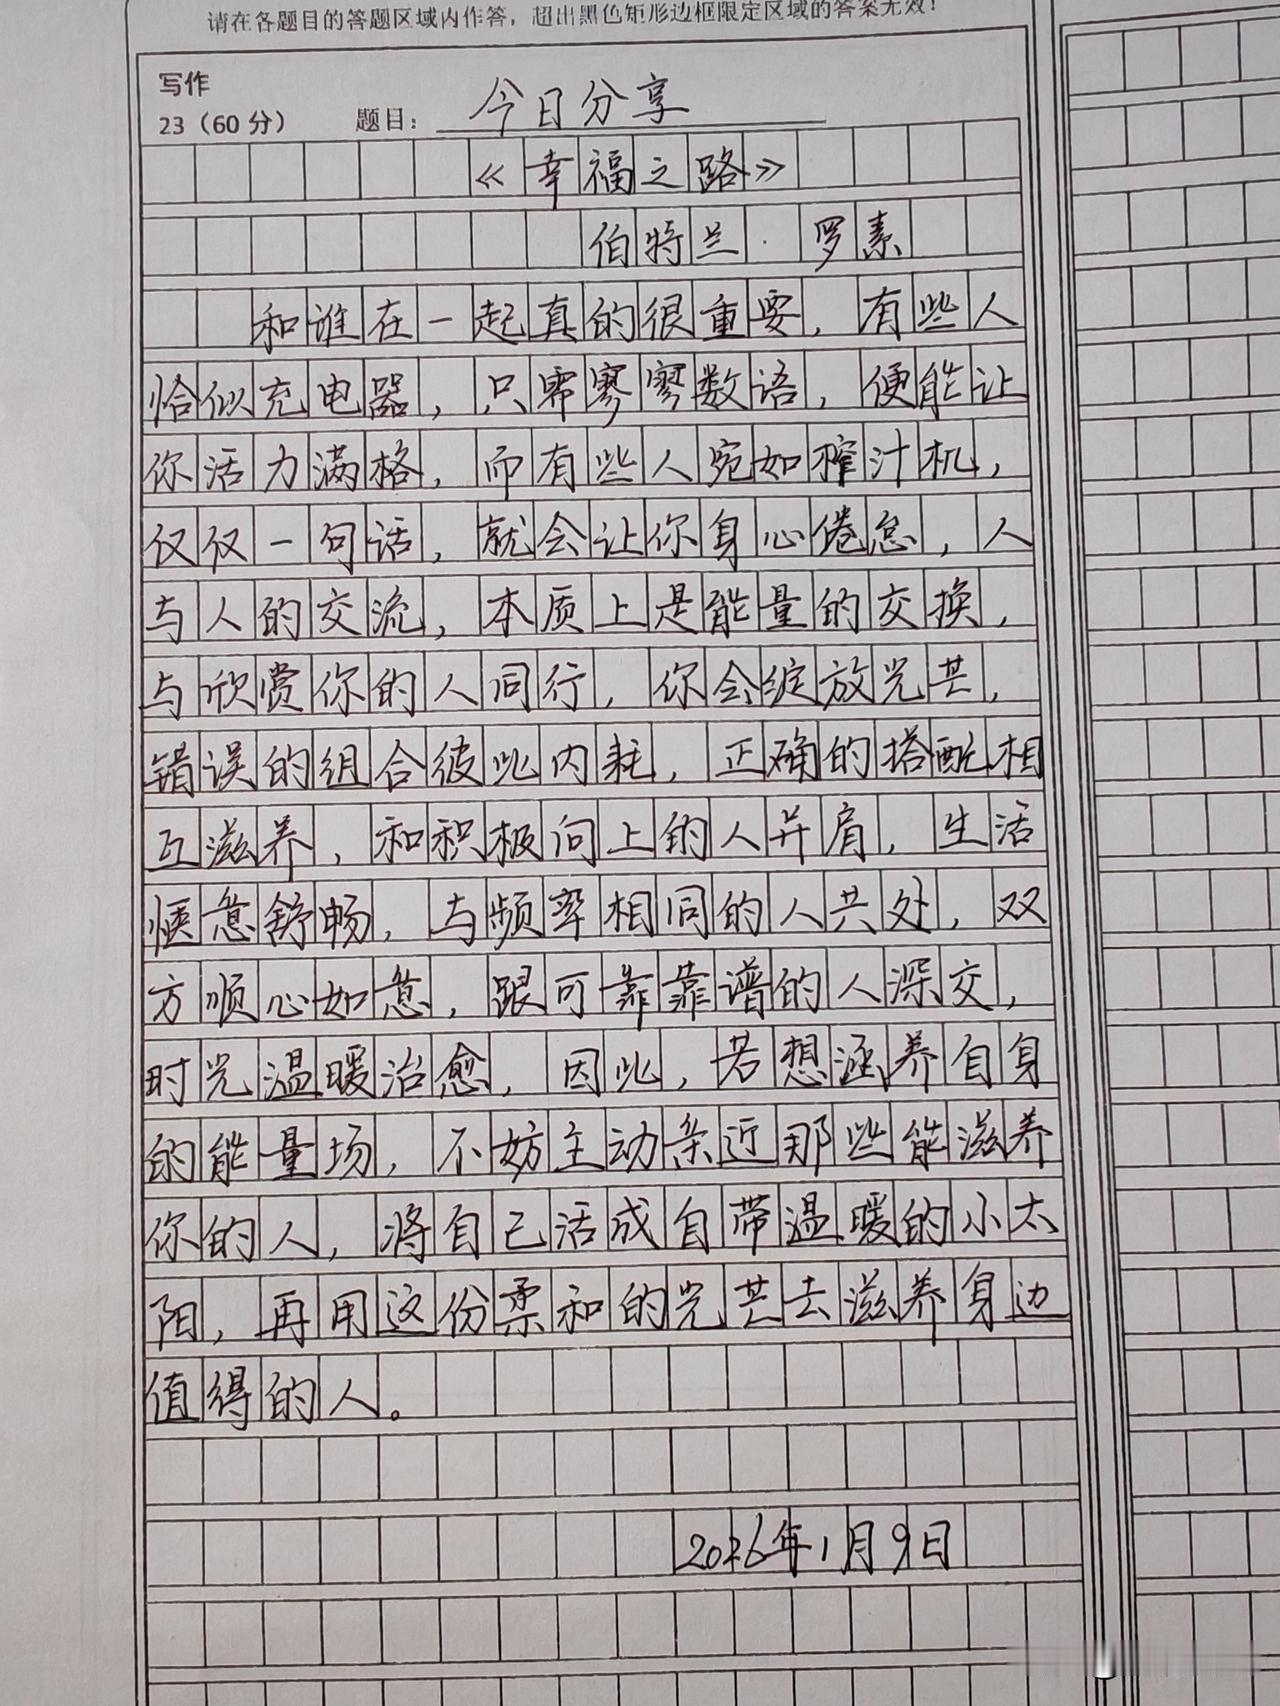 请在各题目的答题区域内作答，超出黑色矩形边框限定区域的答案无效！
写作
23（60分） 题目：今日分享
《幸福之路》
伯特兰·罗素
和谁在一起真的很重要，有些人
恰似充电器，只需寥寥数语，便能让
你活力满格，而有些人宛如榨汁机，
仅仅一句话，就会让你身心倦怠，人
与人的交流，本质上是能量的交换，
与欣赏你的人同行，你会绽放光芒，
错误的组合彼此内耗，正确的搭配相
互滋养，和积极向上的人并肩，生活
惬意舒畅，与频率相同的人共处，双
方顺心如意，跟可靠靠谱的人深交，
时光温暖治愈，因此，若想涵养自身
的能量场，不妨主动亲近那些能滋养
你的人，将自己活成自带温暖的小太
阳，再用这份柔和的光芒去滋养身边
值得的人。
2026年1月9日